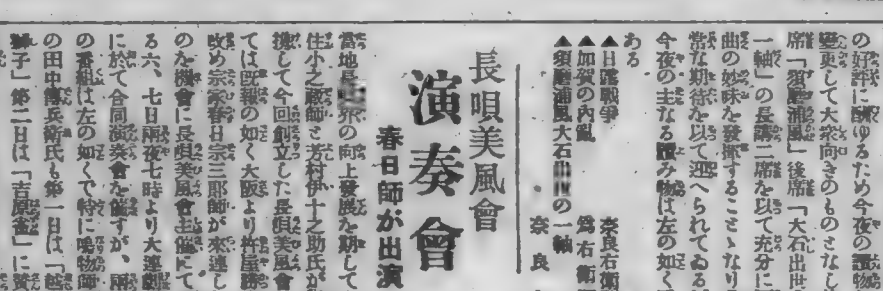 の好評に酬ゆるため今夜の讀物
變更して大衆向きのものとなし
席「須磨浦風」後席「大石出世
一軸」の長講二席を以て充分に
曲の妙味を發揮することゝなり
常な期待を以て迎へられてゐる
今夜の主なる讀み物は左の如く
ある
▲日露戰爭 奈良右衛
▲加賀の內亂 爲右衛
▲須磨浦風大石出世の一軸 奈良
長唄美風會
演奏會
春日師が出演
當地長唄界の向上發展を期して
住小之藏師と芳村伊十之助氏が
携して今回創立した長唄美風會
ては既報の如く大阪より杵屋勝
改め宗家春日宗三郎師が來連し
のを機會に長唄美風會主催にて
る六、七日兩夜七時より大連劇
に於て合同演奏會を催すが、兩
の番組は左の如くで特に鳴物師
の田中傳兵衛氏も第一日は「越
獅子」第二日は「吉原雀」に賛